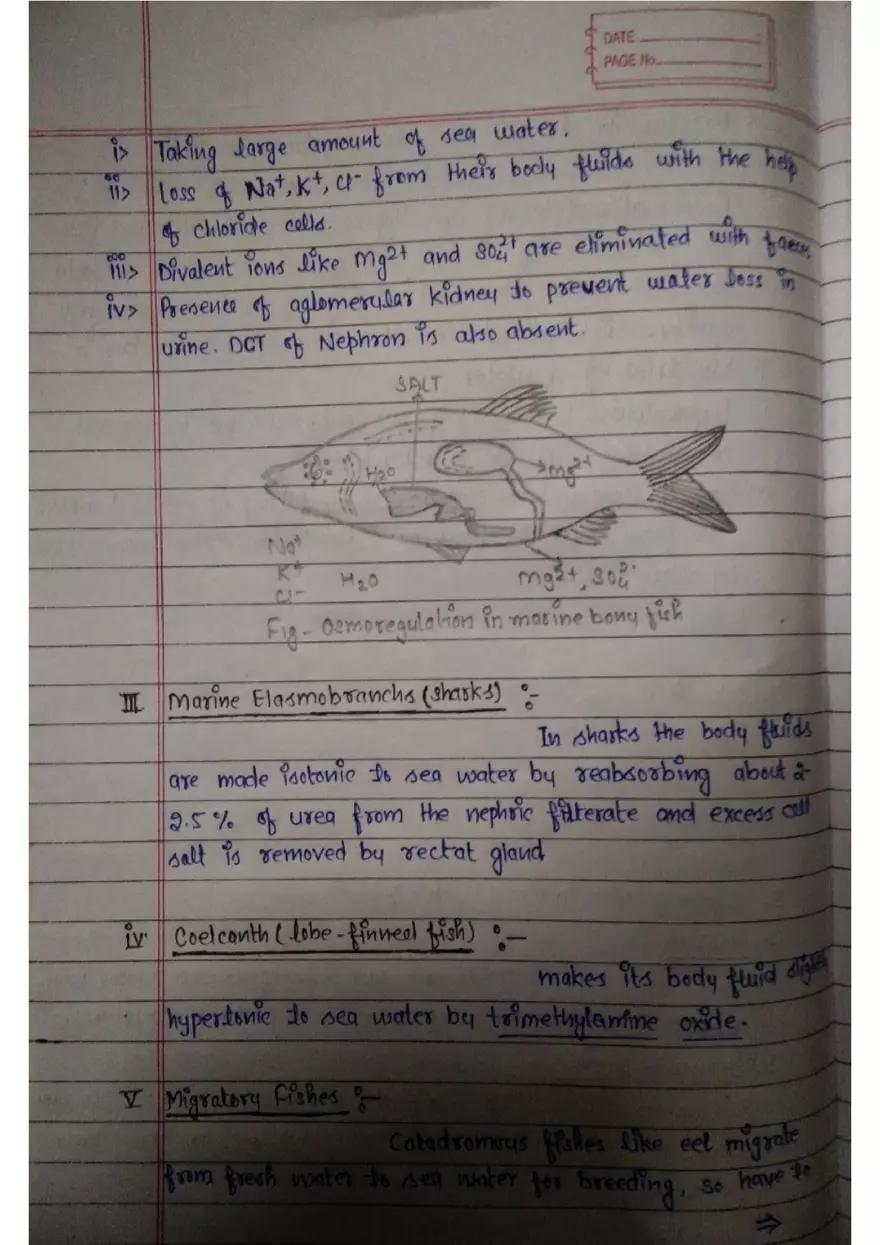 DATE
PAGE No.
i> Taking large amount of sea water.
ii> Loss of Na+, K+, Cl- from their body fluids with the help
of chloride cells.
iii> Divalent ions like Mg2+ and SO4 2+ are eliminated with faeces.
iv> Presence of aglomerular kidney to prevent water loss in
urine. DCT of Nephron is also absent.
SALT
H2O
Mg2+
Na+
K+
Cl-
H2O
Mg2+, SO4 2-
Fig - Osmoregulation in marine bony fish
III Marine Elasmobranchs (sharks) :-
In sharks the body fluids
are made isotonic to sea water by reabsorbing about 2-
2.5% of urea from the nephric filterate and excess
salt is removed by rectal gland
iv. Coelcanth (lobe-finned fish) :-
makes its body fluid
hypertonic to sea water by trimethylamine oxide.
V Migratory Fishes :-
Catadromous fishes like eel migrate
from fresh water to sea water for breeding, so have to
⇒